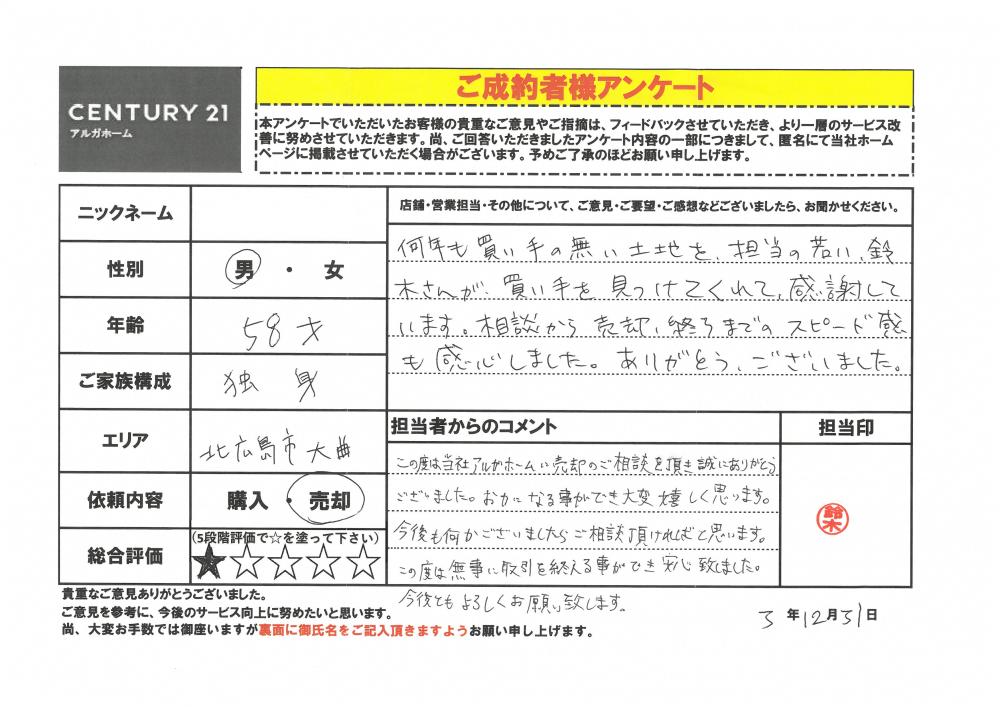 CENTURY 21
アルガホーム
ご成約者様アンケート
本アンケートでいただいたお客様の貴重なご意見やご指摘は、フィードバックさせていただき、より一層のサービス改
善に努めさせていただきます。尚、ご回答いただきましたアンケート内容の一部につきまして、匿名にて当社ホーム
ページに掲載させていただく場合がございます。予めご了承のほどお願い申し上げます。
ニックネーム
性別
男 ・ 女
年齢
58才
ご家族構成
独身
エリア
北広島市大曲
依頼内容
購入 ・ 売却
総合評価
(5段階評価で☆を塗って下さい)
★☆☆☆☆
店舗・営業担当・その他について、ご意見・ご要望・ご感想などございましたら、お聞かせください。
何年も買い手の無い土地を、担当の若い、鈴
木さんが、買い手を見つけてくれて、感謝して
います。相談から売却、終了までのスピード感
も感心しました。ありがとう、ございました。
担当者からのコメント
この度は当社アルガホームに売却のご相談を頂き誠にありがとう
ございました。おカになる事ができ大変嬉しく思います。
今後も何かございましたらご相談頂ければと思います。
この度は無事に取引を終える事ができ安心致しました。
今後ともよろしくお願い致します。
担当印
鈴木
貴重なご意見ありがとうございました。
ご意見を参考に、今後のサービス向上に努めたいと思います。
尚、大変お手数では御座いますが裏面に御氏名をご記入頂きますようお願い申し上げます。
3 年 12 月 31 日